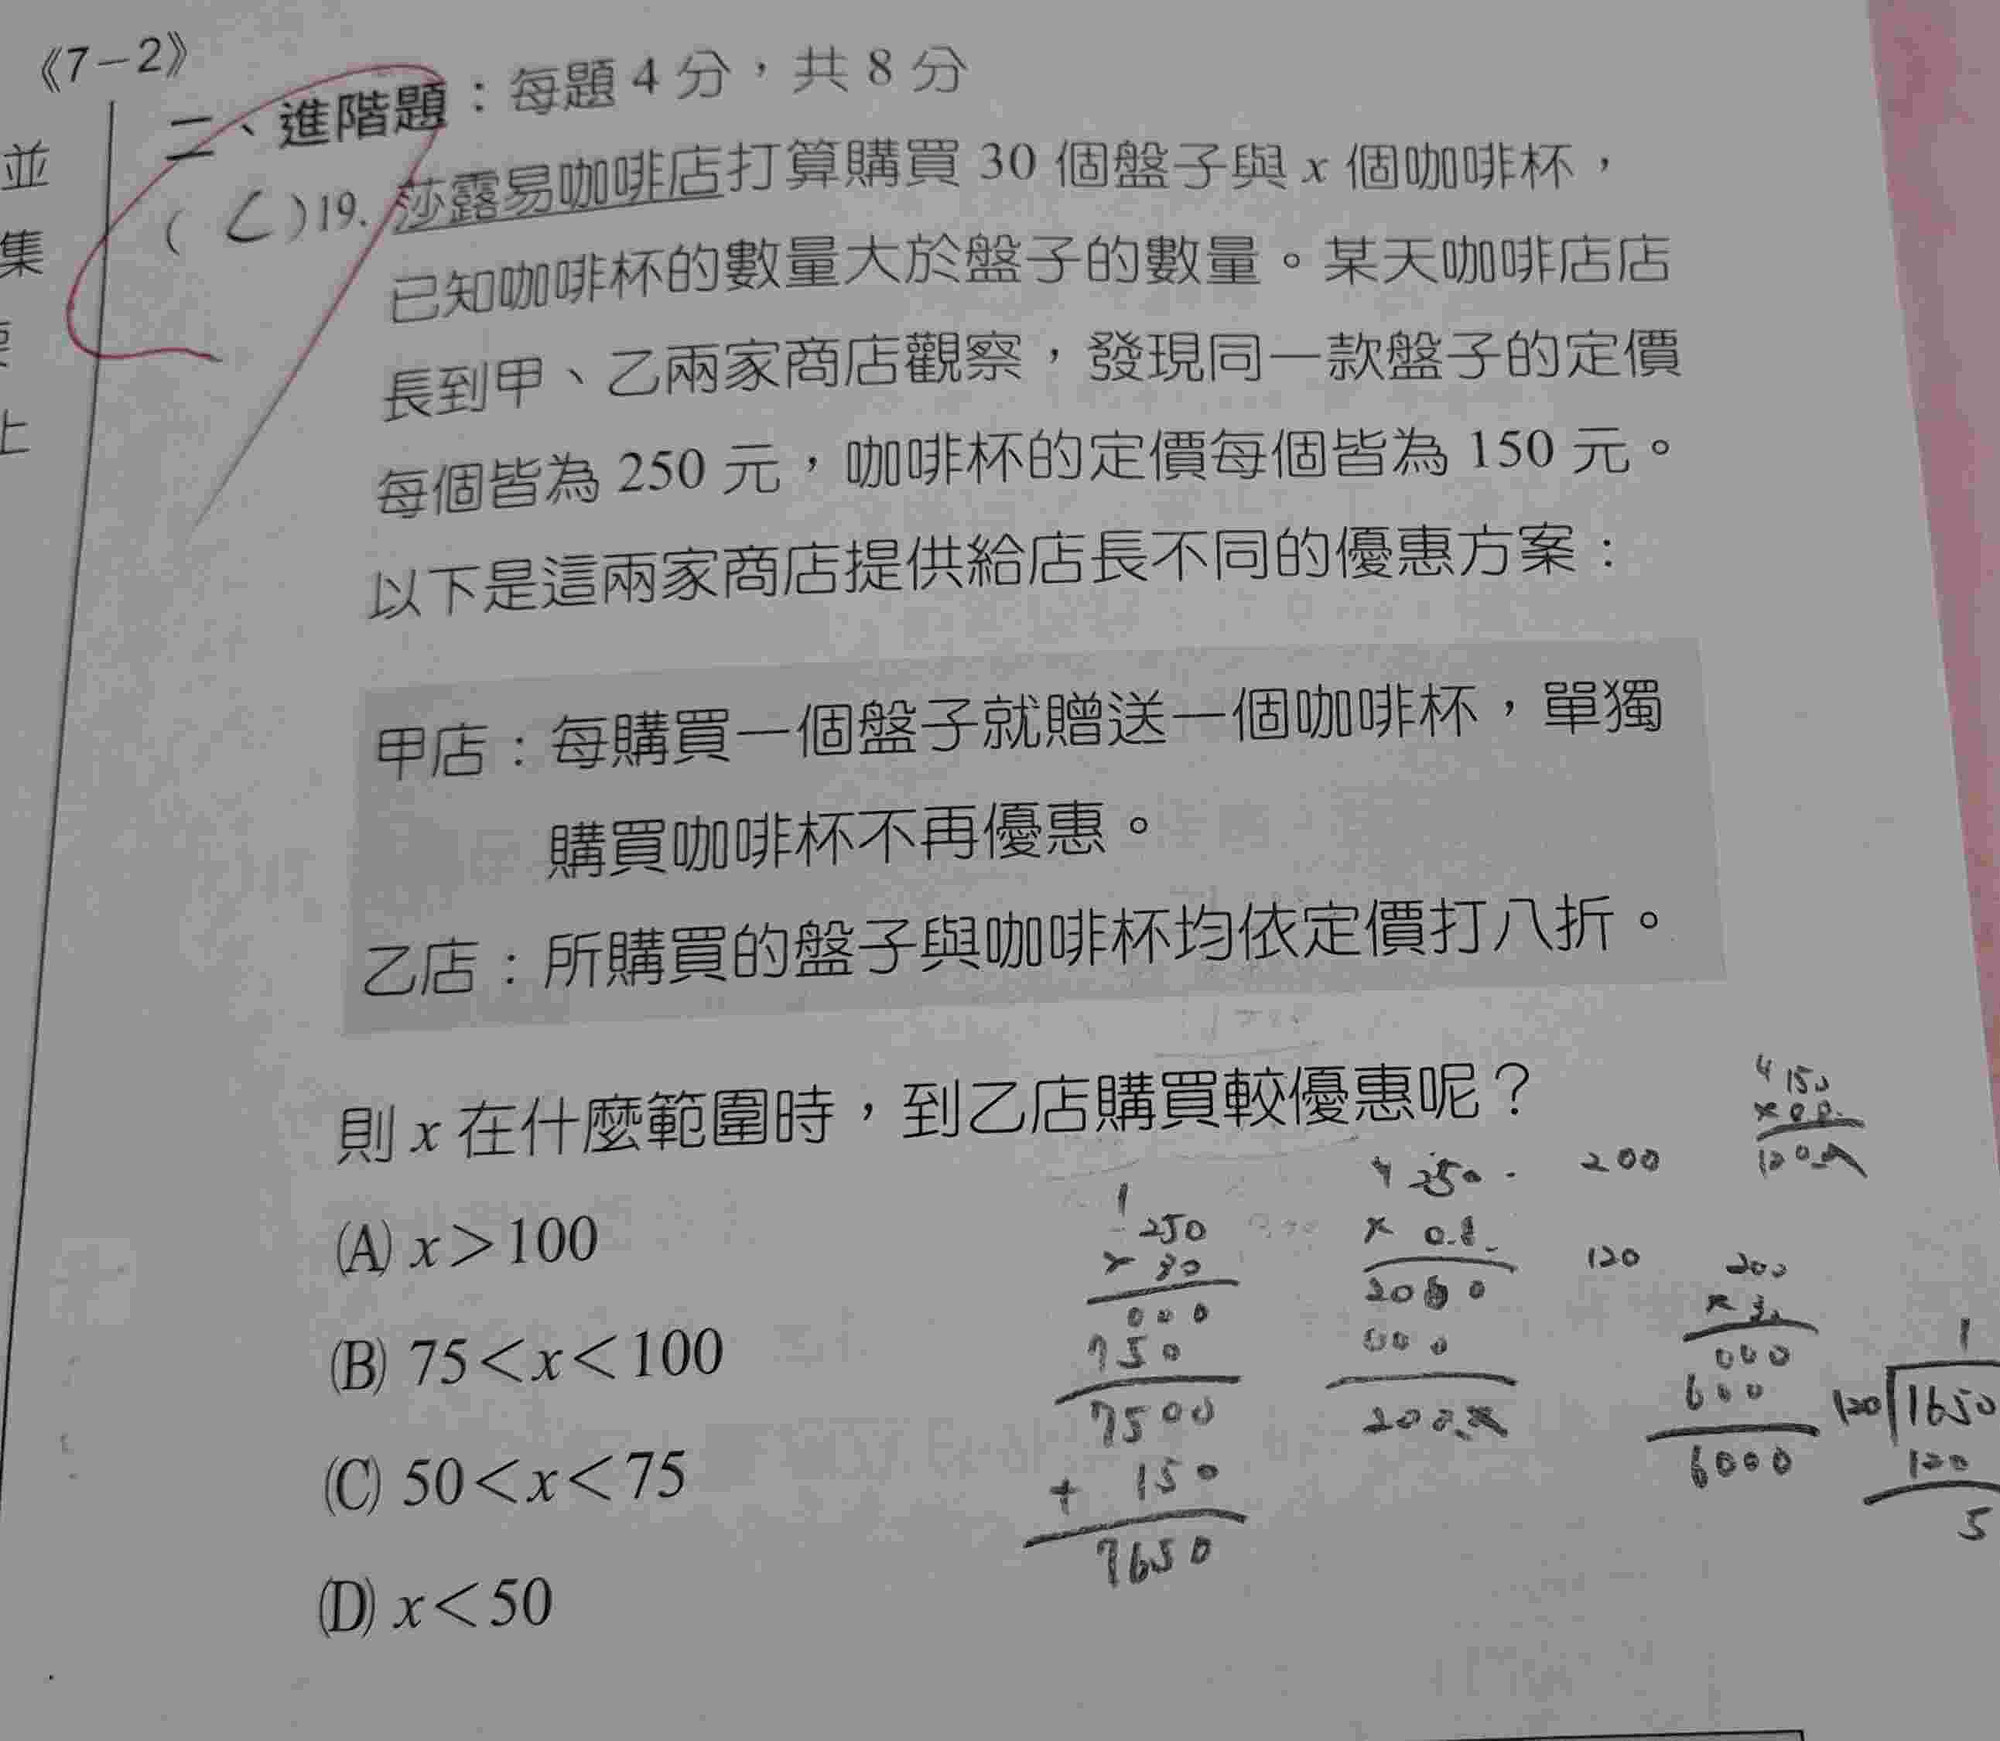 《7－2》
並
集
上
二、進階題：每題 4 分，共 8 分
( C )19. 莎露易咖啡店打算購買 30 個盤子與 x 個咖啡杯，
已知咖啡杯的數量大於盤子的數量。某天咖啡店店
長到甲、乙兩家商店觀察，發現同一款盤子的定價
每個皆為 250 元，咖啡杯的定價每個皆為 150 元。
以下是這兩家商店提供給店長不同的優惠方案：
甲店：每購買一個盤子就贈送一個咖啡杯，單獨
購買咖啡杯不再優惠。
乙店：所購買的盤子與咖啡杯均依定價打八折。
則 x 在什麼範圍時，到乙店購買較優惠呢？
(A) x＞100
(B) 75＜x＜100
(C) 50＜x＜75
(D) x＜50
1
250
× 30
000
750
7500
+ 150
7650
4 250
× 0.8
000
200
120
200
× 30
000
600
6000
4 150
1
120 1650
120
5